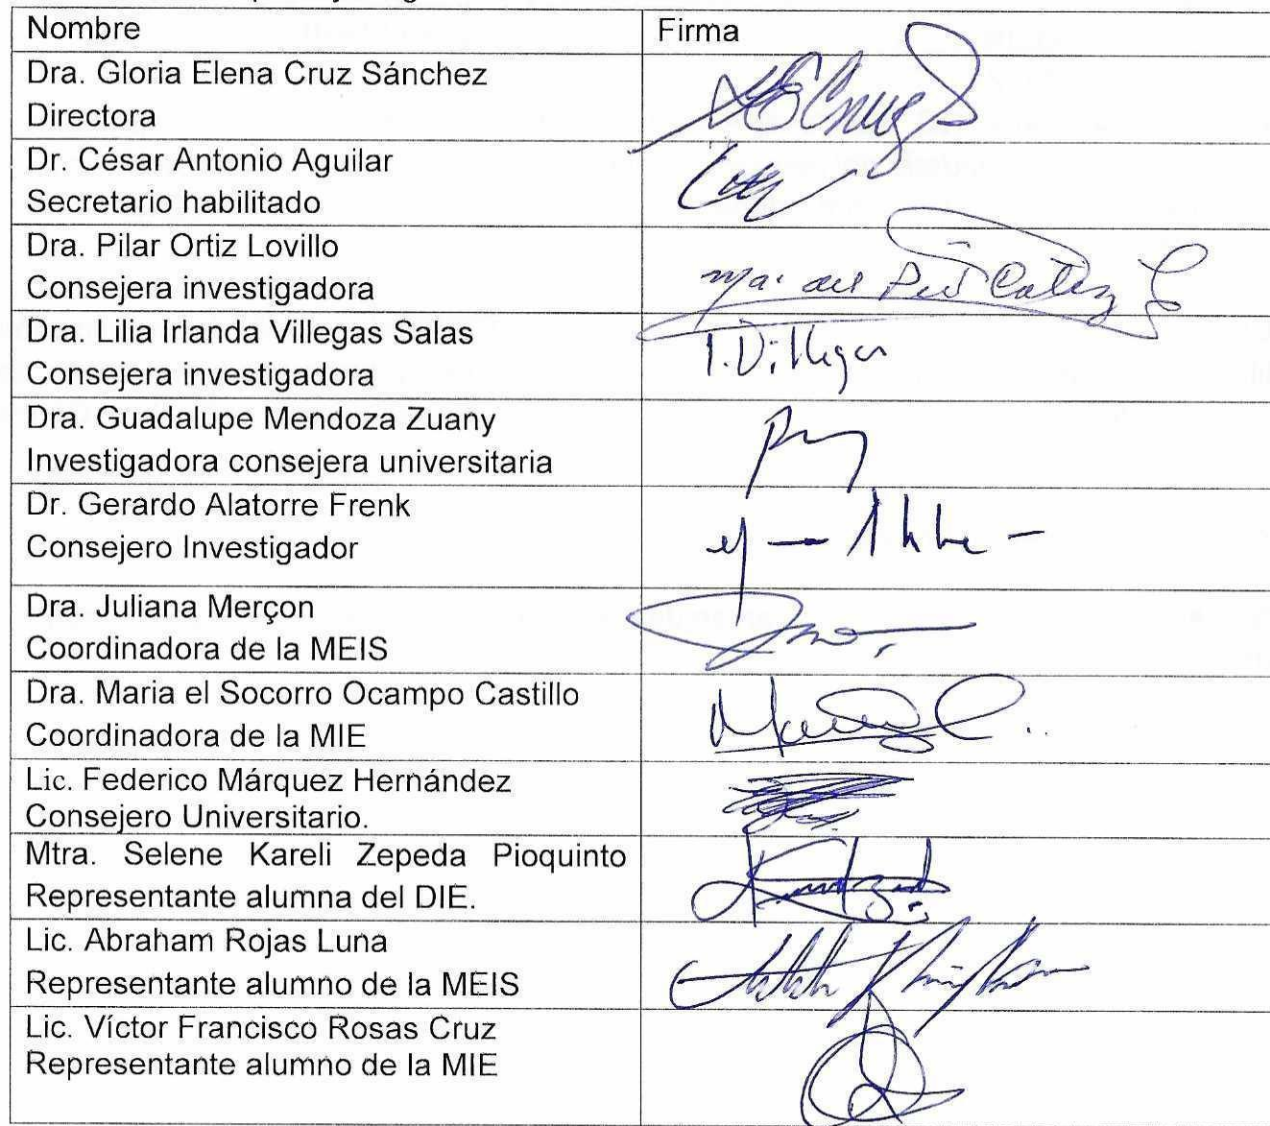 Nombre Firma
Dra. Gloria Elena Cruz Sánchez
Directora
Dr. César Antonio Aguilar
Secretario habilitado
Dra. Pilar Ortiz Lovillo
Consejera investigadora
Dra. Lilia Irlanda Villegas Salas
Consejera investigadora
I. Villegas
Dra. Guadalupe Mendoza Zuany
Investigadora consejera universitaria
Dr. Gerardo Alatorre Frenk
Consejero Investigador
Dra. Juliana Merçon
Coordinadora de la MEIS
Dra. Maria el Socorro Ocampo Castillo
Coordinadora de la MIE
Lic. Federico Márquez Hernández
Consejero Universitario.
Mtra. Selene Kareli Zepeda Pioquinto
Representante alumna del DIE.
Lic. Abraham Rojas Luna
Representante alumno de la MEIS
Lic. Víctor Francisco Rosas Cruz
Representante alumno de la MIE